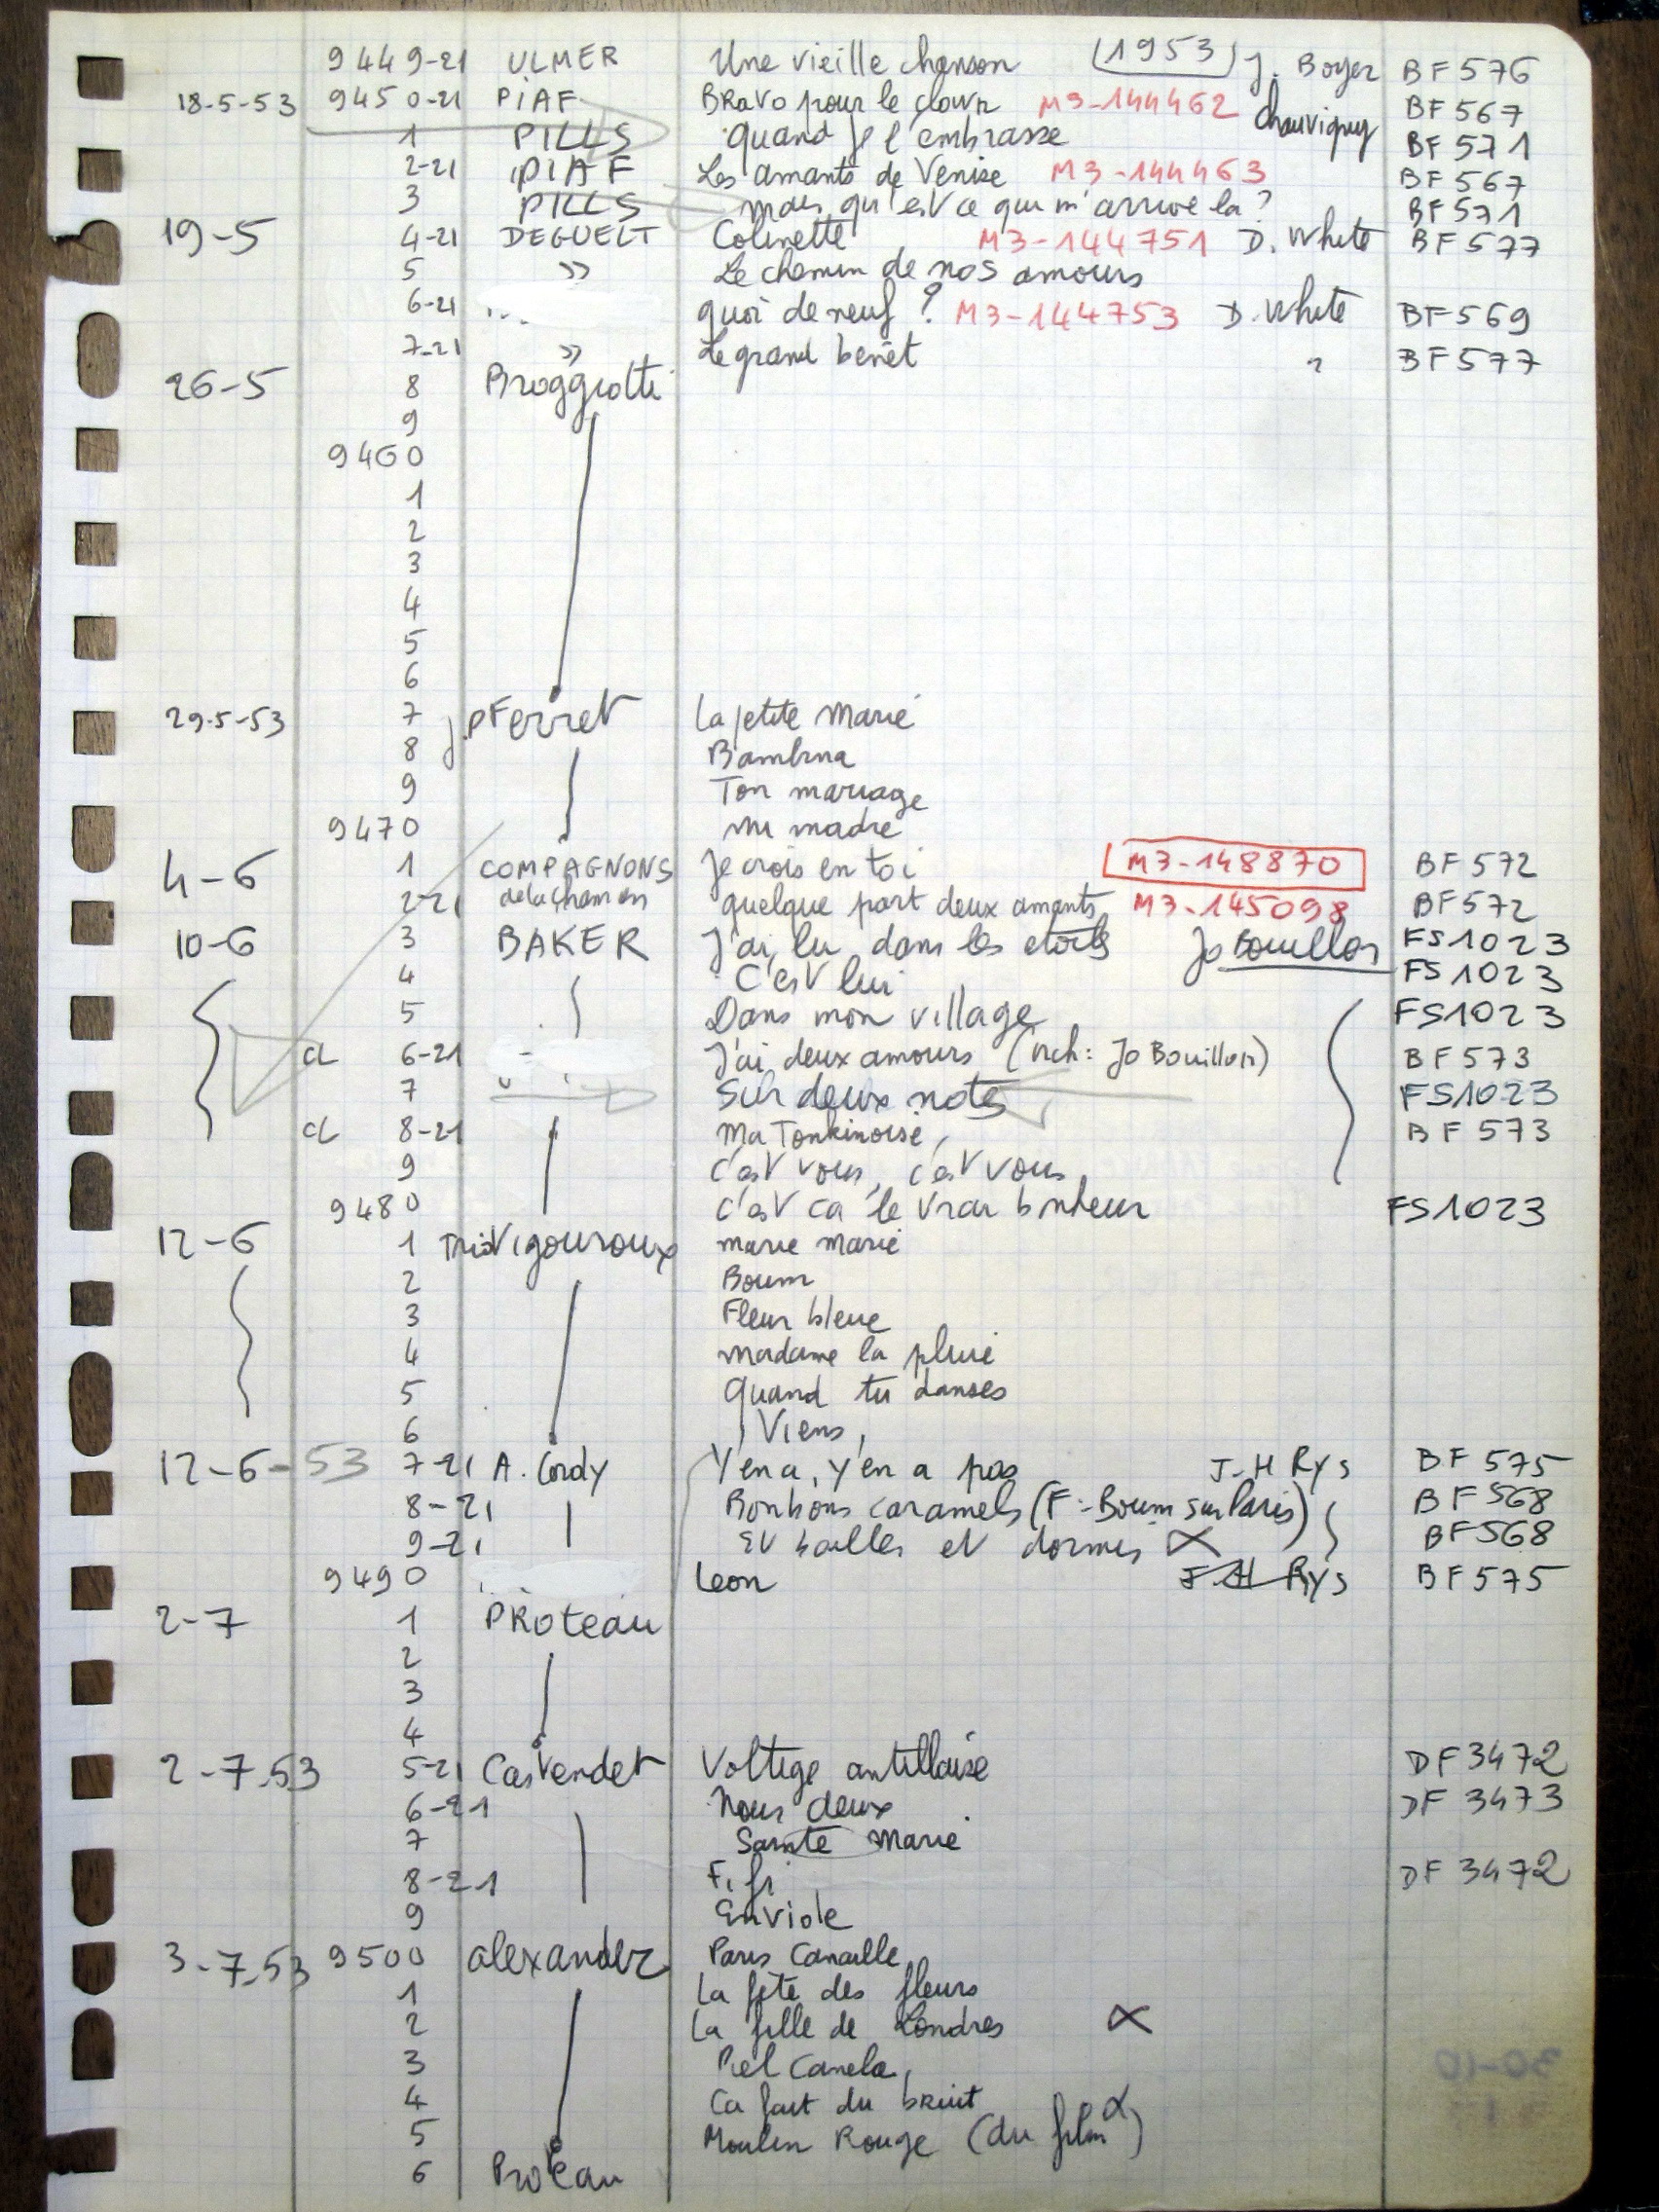 9449-21 ULMER Une vieille chanson (1953) J. Boyer BF 576
18-5-53 9450-21 PIAF BRaVo pour le clown M3-144462 Chauvigny BF 567
1 PILLS quand je l'embrasse BF 571
2-21 PIAF Les amants de Venise M3-144463 BF 567
3 PILLS mais qu'est ce qui m'arrive la? BF 571
19-5 4-21 DEGUELT Colinette M3-144751 D. White BF 577
5 » Le chemin de nos amours
6-21 quoi de neuf? M3-144753 D. White BF 569
7-21 » Le grand benêt " BF 577
26-5 8 Broggiotti
9
9460
1
2
3
4
5
6
29-5-53 7 J.P Ferret La petite Marie
8 Bambina
9 Ton mariage
9470 mi madre
4-6 1 COMPAGNONS Je crois en toi M3-148870 BF 572
2-21 de la chanson quelque part deux amants M3-145098 BF 572
10-6 3 BAKER J'ai lu dans les etoiles Jo Bouillon FS1023
4 C'est lui FS1023
5 Dans mon village FS1023
CL 6-21 J'ai deux amours (orch: Jo Bouillon) BF 573
7 Sur deux notes FS1023
CL 8-21 Ma Tonkinoise BF 573
9 c'est vous, c'est vous
9480 c'est ca le vrai bonheur FS1023
12-6 1 Trio Vigouroux marie marie
2 Boum
3 Fleur bleue
4 Madame la pluie
5 Quand tu danses
6 Viens
12-6-53 7-21 A. Cordy Y'en a, y'en a pas J-H Rys BF 575
8-21 Bonbons caramels (F: Boum sur Paris) BF 568
9-21 Et bailles et dormes BF568
9490 Leon J-H Rys BF 575
2-7 1 PRoteau
2
3
4
2-7-53 5-21 Castendet Voltige antillaise DF 3472
6-21 Nous deux DF 3473
7 Sainte Marie
8-21 Fifi DF 3472
9 Enviole
3-7-53 9500 alexander Paris Canaille
1 La fête des fleurs
2 La fille de Londres
3 Piel Canela
4 Ca fait du bruit
5 Moulin Rouge (du film)
6 Proteau